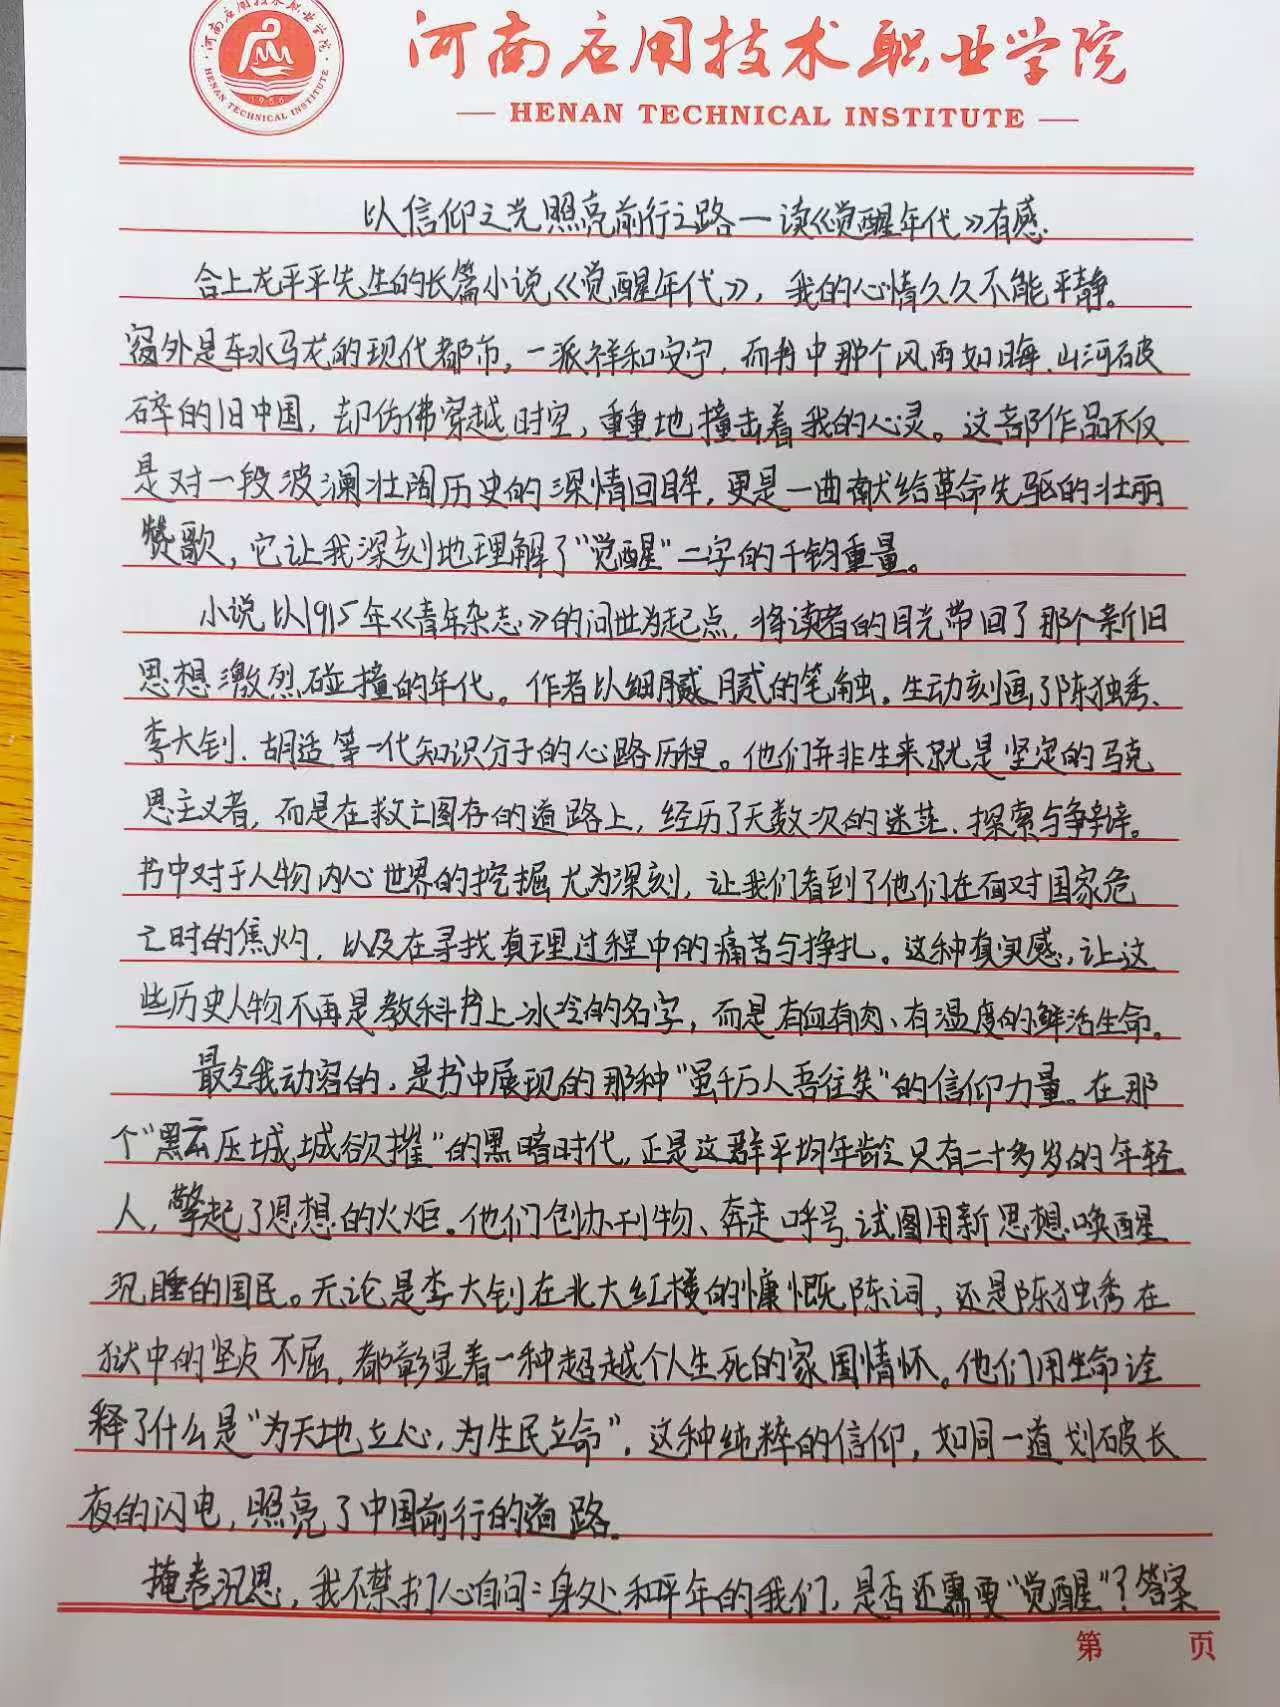 河南应用技术职业学院
河南应用技术职业学院
HENAN TECHNICAL INSTITUTE
1956
HENAN TECHNICAL INSTITUTE
以信仰之光照亮前行之路—读《觉醒年代》有感
合上龙平平先生的长篇小说《觉醒年代》，我的心情久久不能平静。
窗外是车水马龙的现代都市，一派祥和安宁，而书中那个风雨如晦、山河破
碎的旧中国，却仿佛穿越时空，重重地撞击着我的心灵。这部作品不仅
是对一段波澜壮阔历史的深情回眸，更是一曲献给革命先驱的壮丽
赞歌，它让我深刻地理解了“觉醒”二字的千钧重量。
小说以1915年《青年杂志》的问世为起点，将读者的目光带回了那个新旧
思想激烈碰撞的年代。作者以细腻腻的笔触，生动刻画了陈独秀、
李大钊、胡适等一代知识分子的心路历程。他们并非生来就是坚定的马克
思主义者，而是在救亡图存的道路上，经历了无数次的迷茫、探索与争辩。
书中对于人物内心世界的挖掘尤为深刻，让我们看到了他们在面对国家危
亡时的焦灼，以及在寻找真理过程中的痛苦与挣扎。这种真实感，让这
些历史人物不再是教科书上冰冷的名字，而是有血有肉、有温度的鲜活生命。
最令我动容的，是书中展现的那种“虽千万人吾往矣”的信仰力量。在那
个“黑云压城城欲摧”的黑暗时代，正是这群平均年龄只有二十多岁的年轻
人，擎起了思想的火炬。他们创办刊物、奔走呼号，试图用新思想唤醒
沉睡的国民。无论是李大钊在北大红楼的慷慨陈词，还是陈独秀在
狱中的坚贞不屈，都彰显着一种超越个人生死的家国情怀。他们用生命诠
释了什么是“为天地立心，为生民立命”，这种纯粹的信仰，如同一道划破长
夜的闪电，照亮了中国前行的道路。
掩卷沉思，我不禁扪心自问：身处和平年的我们，是否还需要“觉醒”？答案
第 页